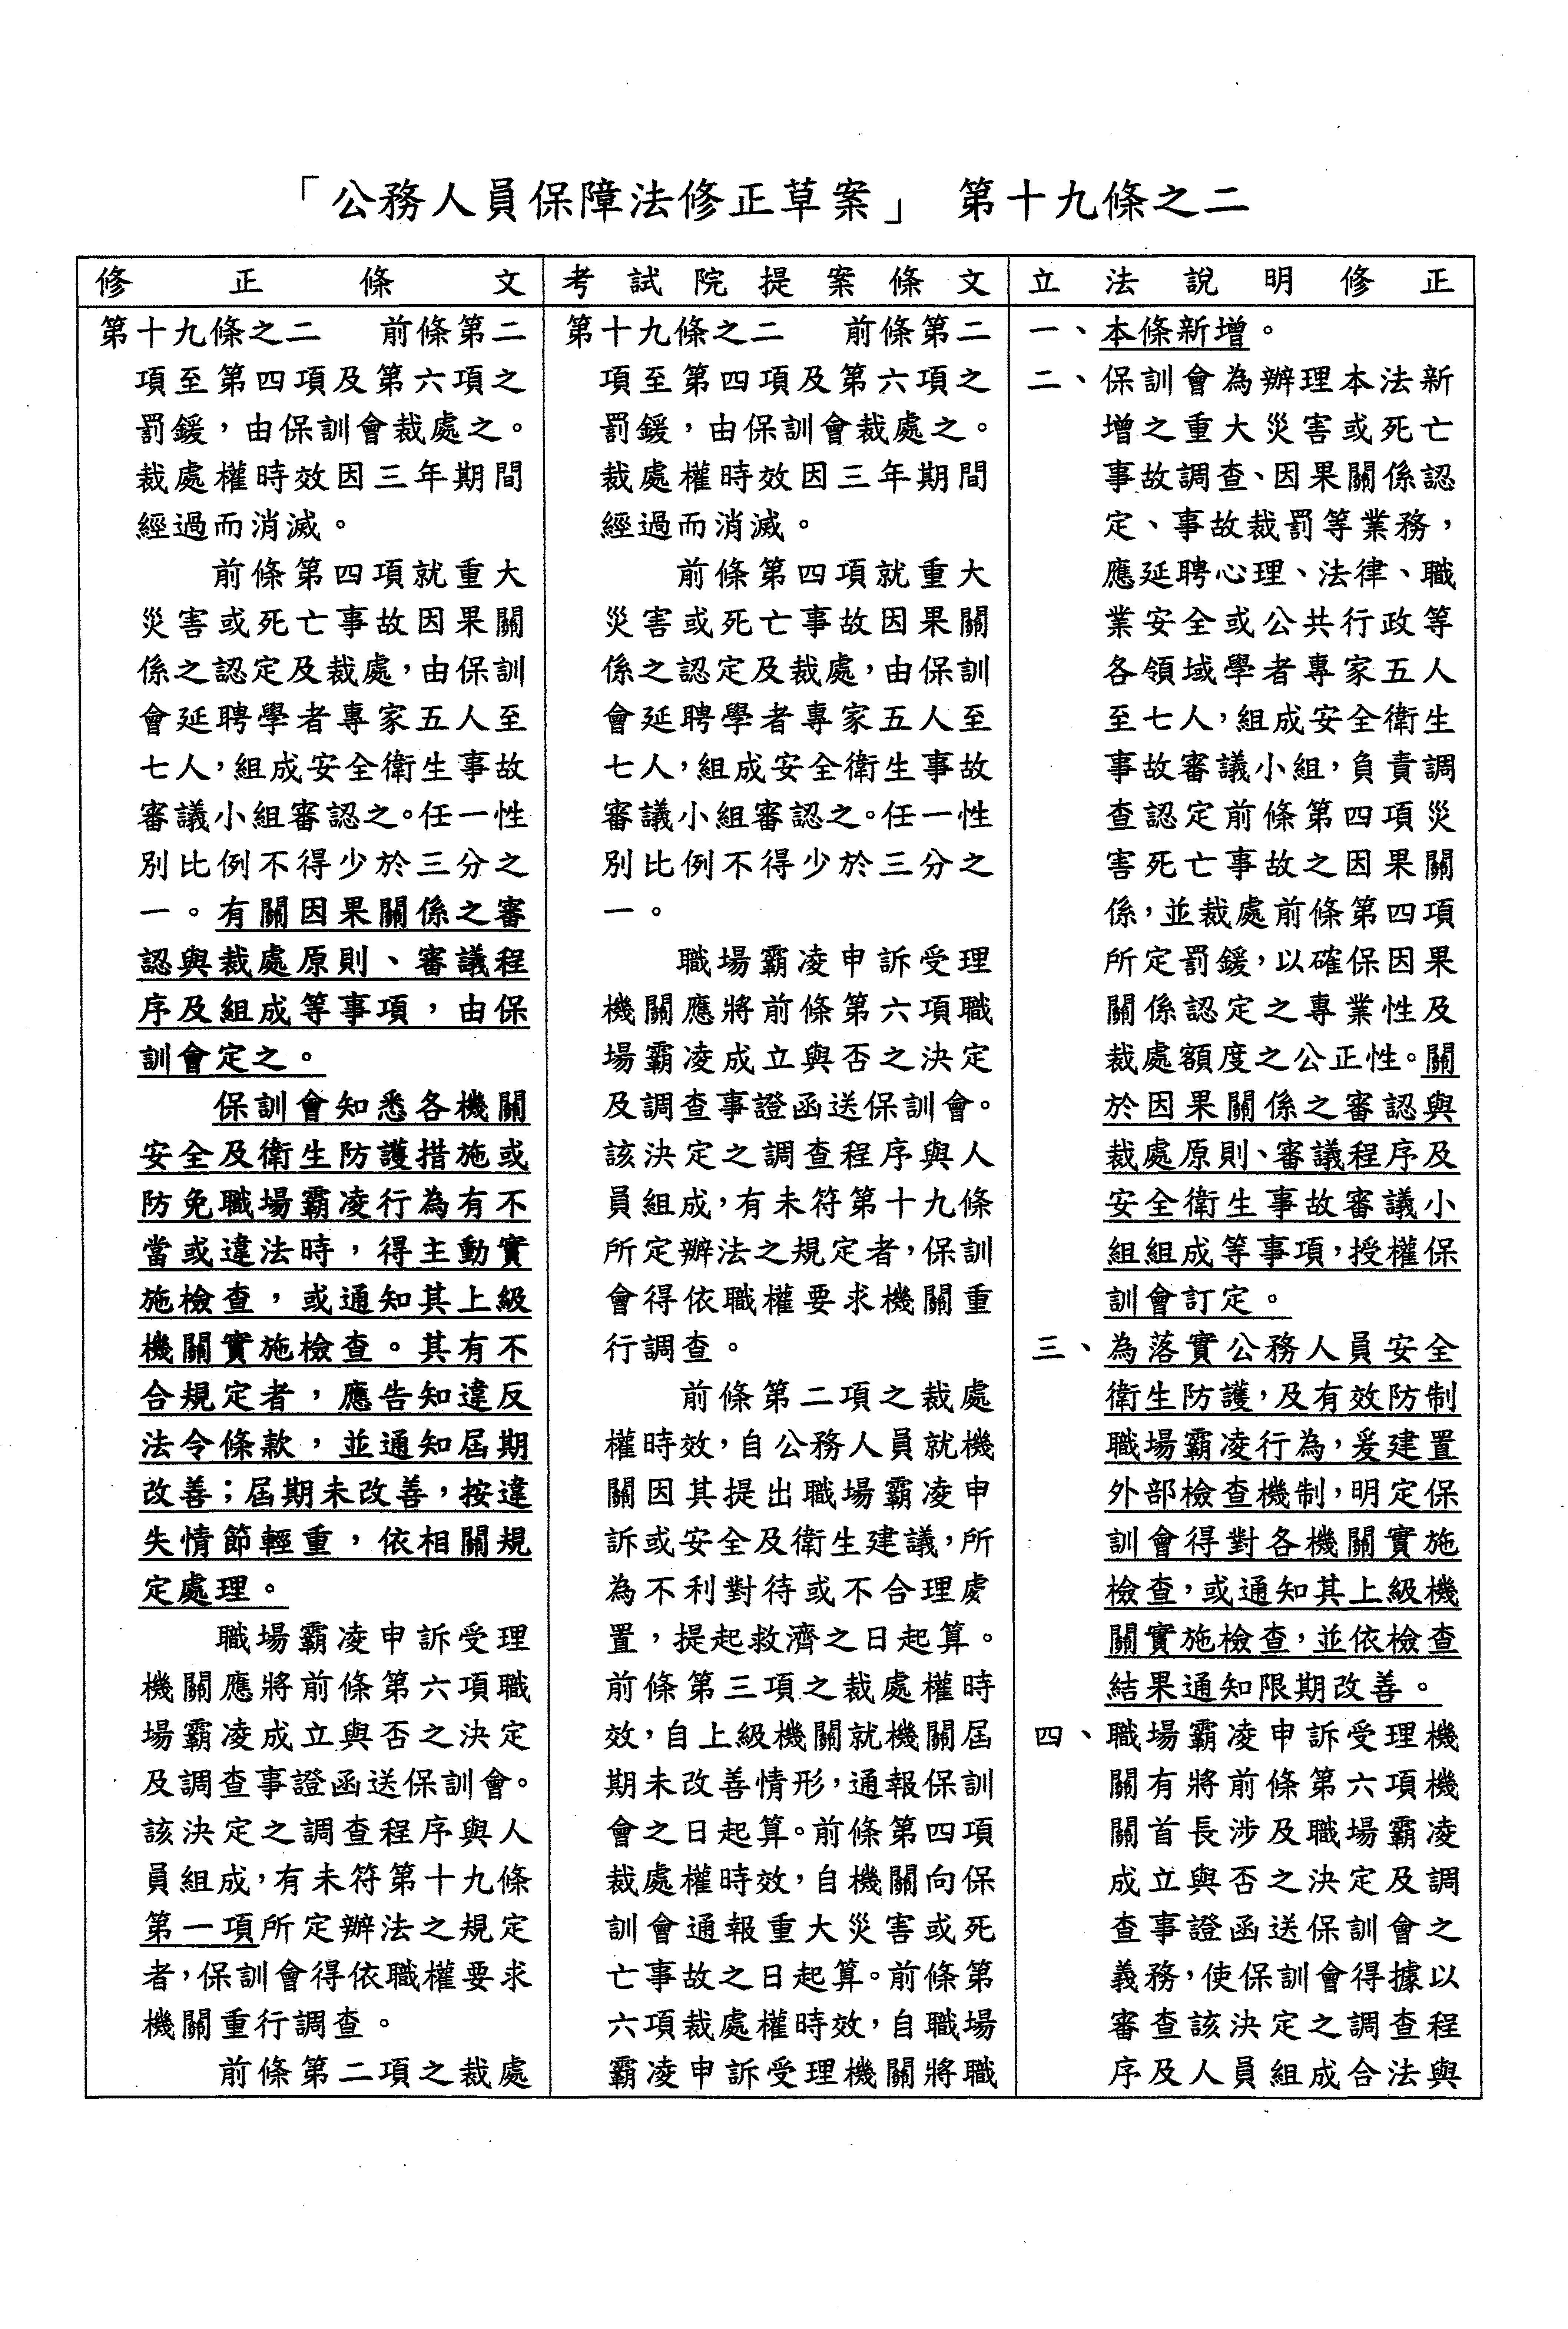 「公務人員保障法修正草案」 第十九條之二
修正條文
第十九條之二 前條第二
項至第四項及第六項之
罰鍰，由保訓會裁處之。
裁處權時效因三年期間
經過而消滅。
前條第四項就重大
災害或死亡事故因果關
係之認定及裁處，由保訓
會延聘學者專家五人至
七人，組成安全衛生事故
審議小組審認之。任一性
別比例不得少於三分之
一。有關因果關係之審
認與裁處原則、審議程
序及組成等事項，由保
訓會定之。
保訓會知悉各機關
安全及衛生防護措施或
防免職場霸凌行為有不
當或違法時，得主動實
施檢查，或通知其上級
機關實施檢查。其有不
合規定者，應告知違反
法令條款，並通知屆期
改善；屆期未改善，按違
失情節輕重，依相關規
定處理。
職場霸凌申訴受理
機關應將前條第六項職
場霸凌成立與否之決定
及調查事證函送保訓會。
該決定之調查程序與人
員組成，有未符第十九條
第一項所定辦法之規定
者，保訓會得依職權要求
機關重行調查。
前條第二項之裁處
考試院提案條文
第十九條之二 前條第二
項至第四項及第六項之
罰鍰，由保訓會裁處之。
裁處權時效因三年期間
經過而消滅。
前條第四項就重大
災害或死亡事故因果關
係之認定及裁處，由保訓
會延聘學者專家五人至
七人，組成安全衛生事故
審議小組審認之。任一性
別比例不得少於三分之
一。
職場霸凌申訴受理
機關應將前條第六項職
場霸凌成立與否之決定
及調查事證函送保訓會。
該決定之調查程序與人
員組成，有未符第十九條
所定辦法之規定者，保訓
會得依職權要求機關重
行調查。
前條第二項之裁處
權時效，自公務人員就機
關因其提出職場霸凌申
訴或安全及衛生建議，所
為不利對待或不合理處
置，提起救濟之日起算。
前條第三項之裁處權時
效，自上級機關就機關屆
期未改善情形，通報保訓
會之日起算。前條第四項
裁處權時效，自機關向保
訓會通報重大災害或死
亡事故之日起算。前條第
六項裁處權時效，自職場
霸凌申訴受理機關將職
立法說明修正
一、本條新增。
二、保訓會為辦理本法新
增之重大災害或死亡
事故調查、因果關係認
定、事故裁罰等業務，
應延聘心理、法律、職
業安全或公共行政等
各領域學者專家五人
至七人，組成安全衛生
事故審議小組，負責調
查認定前條第四項災
害死亡事故之因果關
係，並裁處前條第四項
所定罰鍰，以確保因果
關係認定之專業性及
裁處額度之公正性。關
於因果關係之審認與
裁處原則、審議程序及
安全衛生事故審議小
組組成等事項，授權保
訓會訂定。
三、為落實公務人員安全
衛生防護，及有效防制
職場霸凌行為，爰建置
外部檢查機制，明定保
訓會得對各機關實施
檢查，或通知其上級機
關實施檢查，並依檢查
結果通知限期改善。
四、職場霸凌申訴受理機
關有將前條第六項機
關首長涉及職場霸凌
成立與否之決定及調
查事證函送保訓會之
義務，使保訓會得據以
審查該決定之調查程
序及人員組成合法與